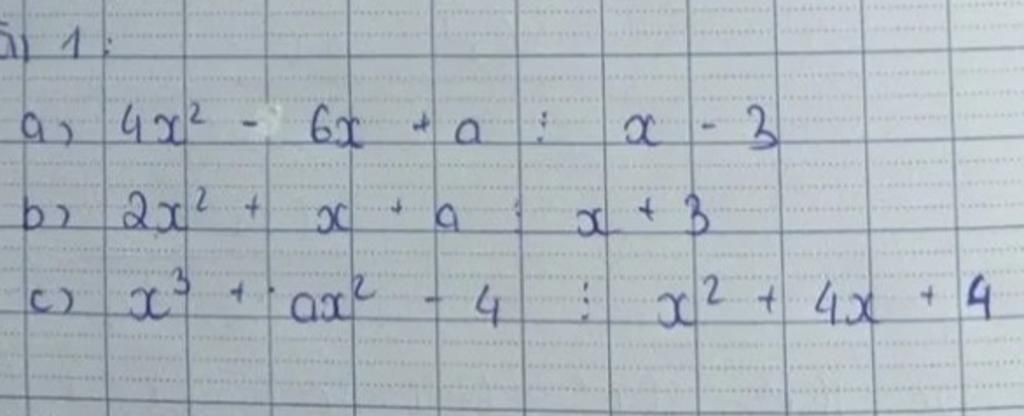 1:
a) 4x² - 6x + a ⋮ x - 3
b) 2x² + x + a ⋮ x + 3
c) x³ + ax² - 4 ⋮ x² + 4x + 4